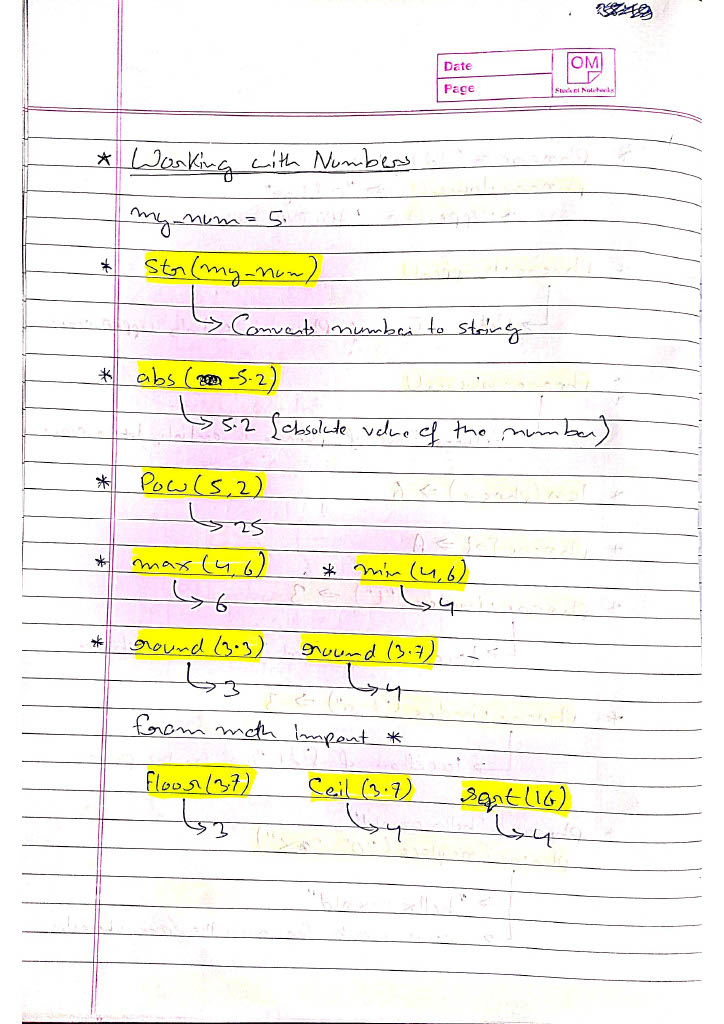 Date
OM
Page
Student Notebooks
* Working with Numbers
my_num = 5.
* Str(my_num)
↳ Converts number to string
* abs ( -5.2)
↳ 5.2 {absolute value of the number}
* Pow(5,2)
↳ 25
* max (4,6) * min (4,6)
↳ 6 ↳ 4
* round (3.3) round (3.7)
↳ 3 ↳ 4
from math import *
Floor(3.7) Ceil (3.7) sqrt(16)
↳ 3 ↳ 4 ↳ 4